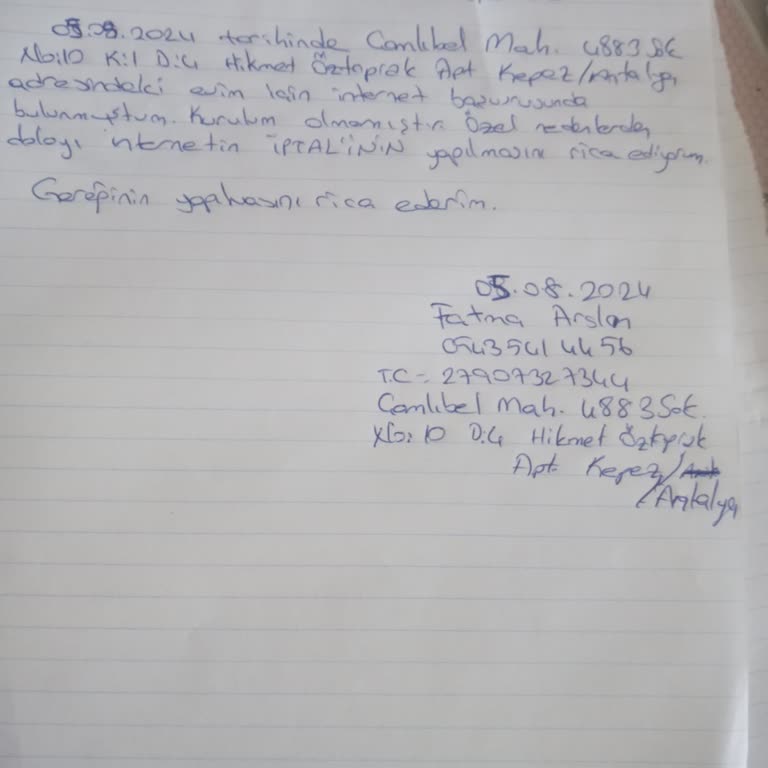 05.08.2024 tarihinde Camlıbel Mah. 4883 Sok
No:10 K:1 D:4 Hikmet Öztoprak Apt Kepez/Antalya
adresindeki evim için internet başvurusunda
bulunmuştum. Kurulum olmamıştır. Özel nedenlerden
dolayı internetin İPTAL'İNİN yapılmasını rica ediyorum.
Gereğinin yapılmasını rica ederim.
05.08.2024
Fatma Arslan
0543 541 44 56
T.C = 27907327344
Camlıbel Mah. 4883 Sok.
No: 10 D:4 Hikmet Öztoprak
Apt. Kepez/
/Antalya